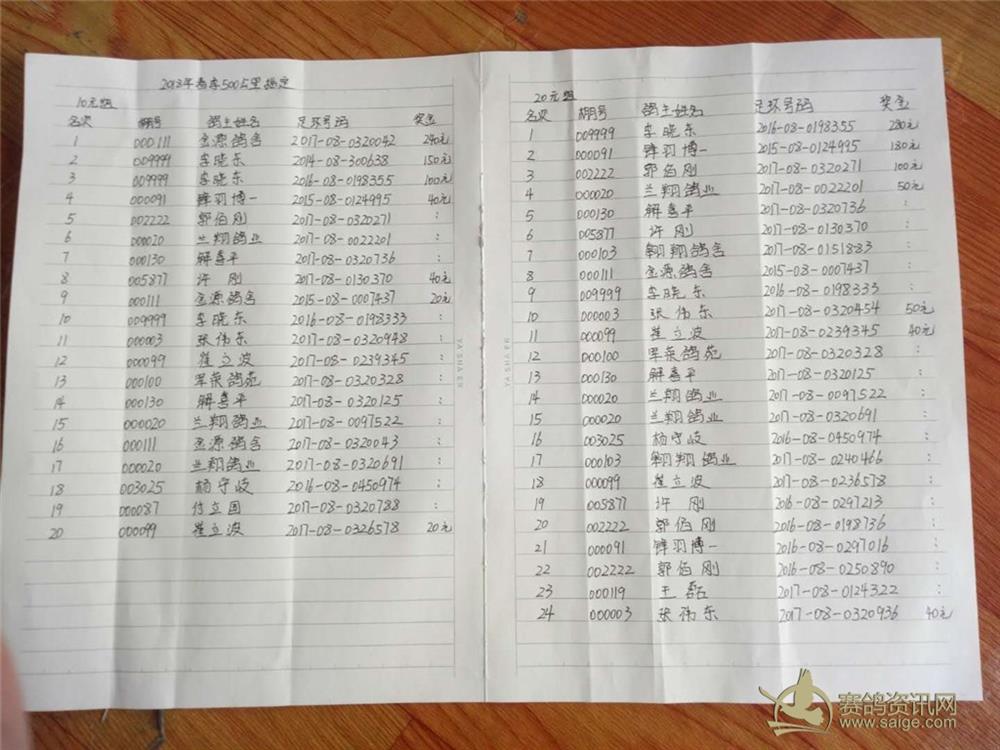 2018年春季500公里指定
10元组
名次 棚号 鸽主姓名 足环号码 奖金
1 000111 金源鸽舍 2017-08-0320042 240元
2 009999 李晓东 2014-08-300638 150元
3 009999 李晓东 2016-08-0198355 100元
4 000091 锋羽博一 2015-08-0124995 40元
5 002222 郭佰刚 2017-08-0320271 :
6 000020 兰翔鸽业 2017-08-0022201 :
7 000130 解喜平 2017-08-0320736 :
8 005877 许刚 2017-08-0130370 40元
9 000111 金源鸽舍 2015-08-0007437 20元
10 009999 李晓东 2016-08-0198333 :
11 000003 张伟东 2017-08-0320948 :
12 000099 崔立波 2017-08-0239345 :
13 000100 军荣鸽苑 2017-08-0320328 :
14 000130 解喜平 2017-08-0320125 :
15 000020 兰翔鸽业 2017-08-0097522 :
16 000111 金源鸽舍 2017-08-0320043 :
17 000020 兰翔鸽业 2017-08-0320691 :
18 003025 杨守岐 2016-08-0450974 :
19 000087 付立国 2017-08-0320788 :
20 000099 崔立波 2017-08-0326578 20元
YA SHA ER
20元组
名次 棚号 鸽主姓名 足环号码 奖金
1 009999 李晓东 2016-08-0198355 280元
2 000091 锋羽博一 2015-08-0124995 180元
3 002222 郭佰刚 2017-08-0320271 100元
4 000020 兰翔鸽业 2017-08-0022201 50元
5 000130 解喜平 2017-08-0320736 :
6 005877 许刚 2017-08-0130370 :
7 000103 翱翔鸽舍 2017-08-0151883 :
8 000111 金源鸽舍 2015-08-0007437
9 009999 李晓东 2016-08-0198333 :
10 000003 张伟东 2017-08-0320454 50元
11 000099 崔立波 2017-08-0239345 40元
12 000100 军荣鸽苑 2017-08-0320328 :
13 000130 解喜平 2017-08-0320125 :
14 000020 兰翔鸽业 2017-08-0097522 :
15 000020 兰翔鸽业 2017-08-0320691 :
16 003025 杨守岐 2016-08-0450974 :
17 000103 翱翔鸽业 2017-08-0240466 :
18 000099 崔立波 2017-08-0236578 :
19 005877 许刚 2016-08-0297213 :
20 002222 郭佰刚 2016-08-0198736 :
21 000091 锋羽博一 2016-08-0297016 :
22 002222 郭佰刚 2016-08-0250890 :
23 000119 王磊 2017-08-0124322 :
24 000003 张伟东 2017-08-0320936 40元
YA SHA ER
赛鸽资讯网
www.saige.com